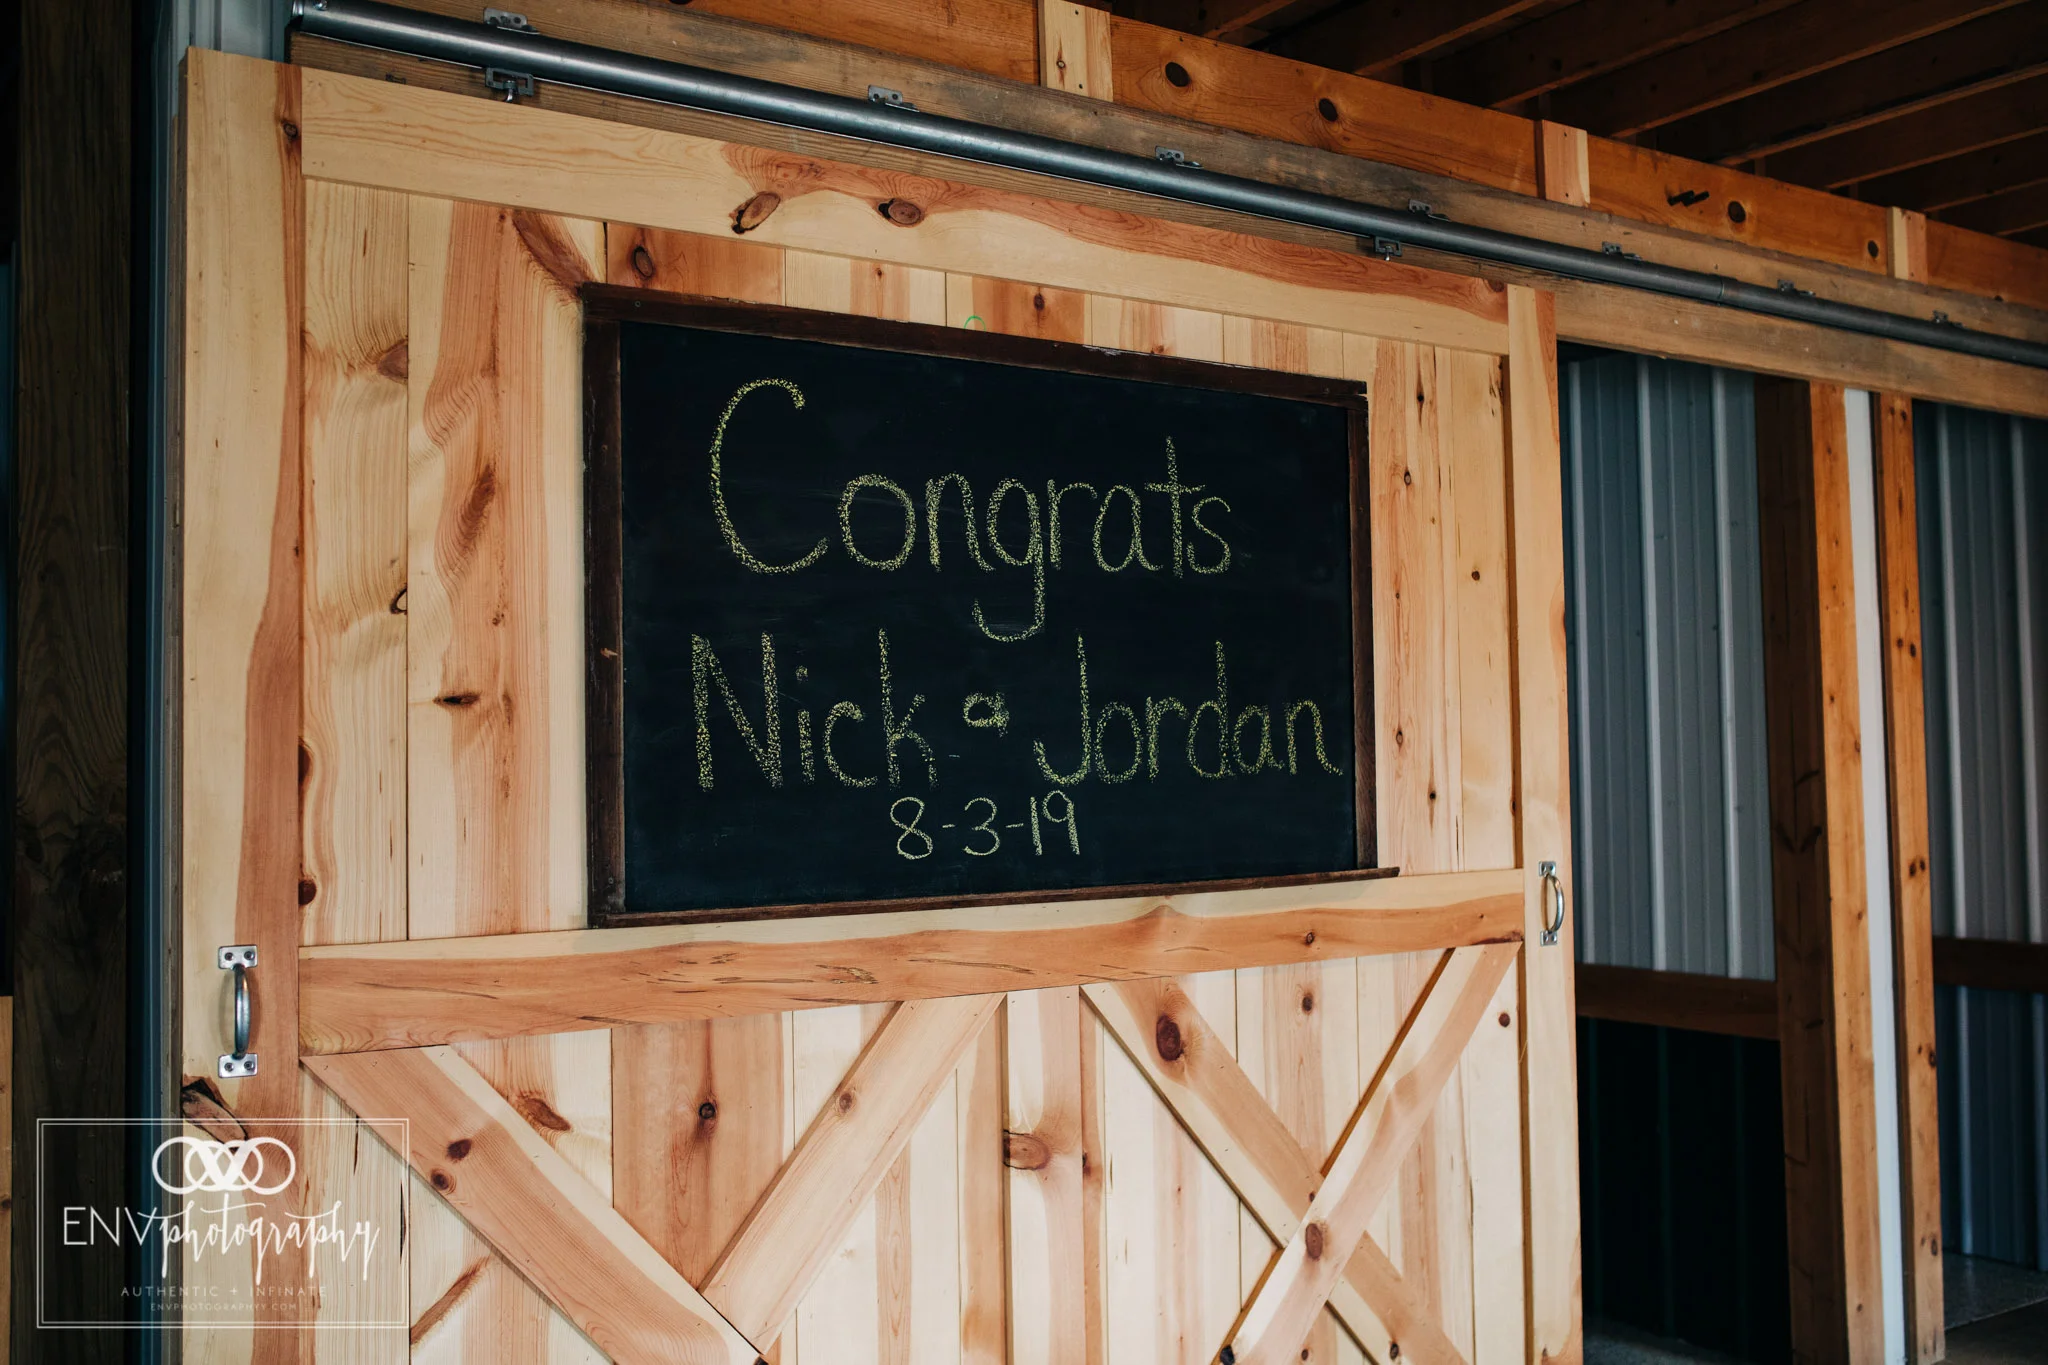 Congrats
Nick & Jordan
8-3-19
ENVphotography
AUTHENTIC + INFINATE
ENVPHOTOGRAPHYY.COM